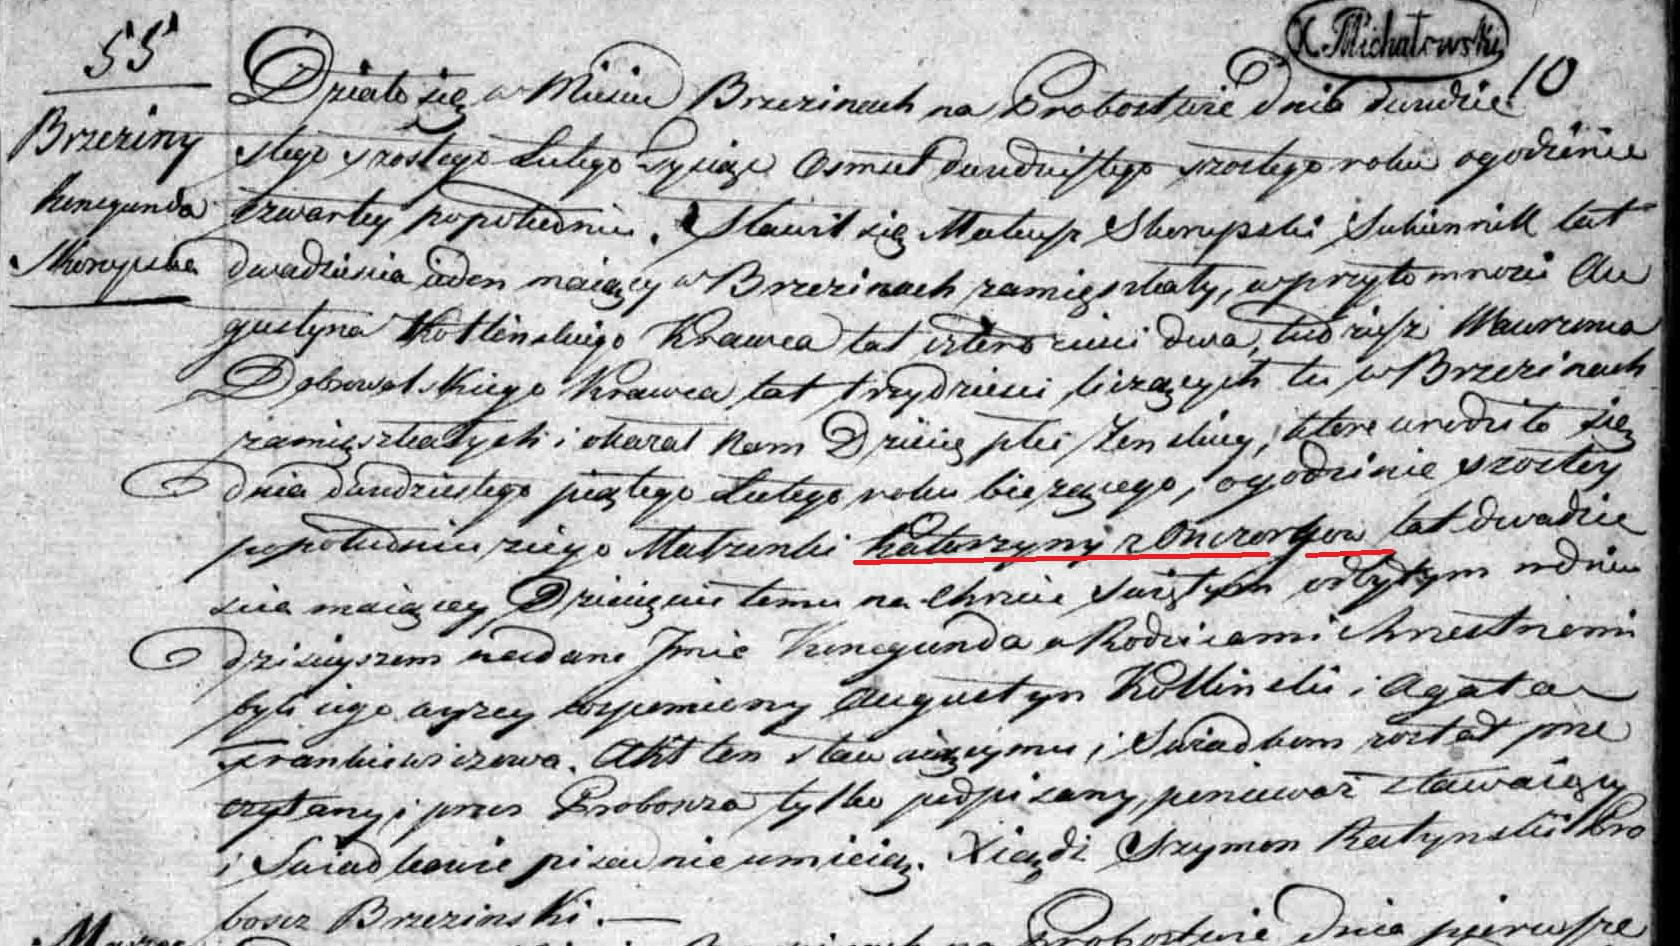 X. Michałowski
10
55
Brzeziny
Kunegunda
Skorupska
Działo się w Mieście Brzezinach na Probostwie dnia dwudzie
stego szostego Lutego Tysiąc Osmset dwudziestego szostego roku ogodzinie
czwartey popołudniu. Stawił się Mateusz Skorupski Sukiennik lat
dwadziescia ieden maiący w Brzezinach zamięszkały, w przytomnosci Au
gustyna Kotlinskiego Krawca lat czterdziesci dwa, tudziesz Wawrzenca
Dobrowolskiego Krawca lat trzydziesci liczących tu w Brzezinach
zamięszkałych i okazał Nam Dziecię płci Zenskiey, ktore urodziło się
dnia dwudziestego piątego Lutego roku bieżącego, ogodzinie szostey
popołudniu z iego Małzonki Katarzyny z lat dwadzie
scia maiącey, Dziecięciu temu na Chrzcie Swiętym odbytym w dniu
dzisieyszem nadano Imie Kunegunda a Rodzicami Chrzestnemi
byli iego wyzey wspomniony Augustyn Kotlinski i Agata
Frankiewiczowa. Akt ten stawaiącymu i Swiadkom został prze
czytany i przez Proboszcza tylko podpisany, poniewaz stawaiący
i Swiadkowie pisac nie umieią. Xiądz Szymon Ratynski Pro
boszcz Brzezinski.
Probostwie dnia pierwsze